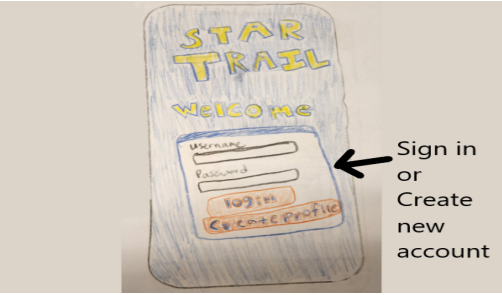 STAR
TRAIL
Welcome
Username
Password
login
Create profile
Sign in
or
Create
new
account